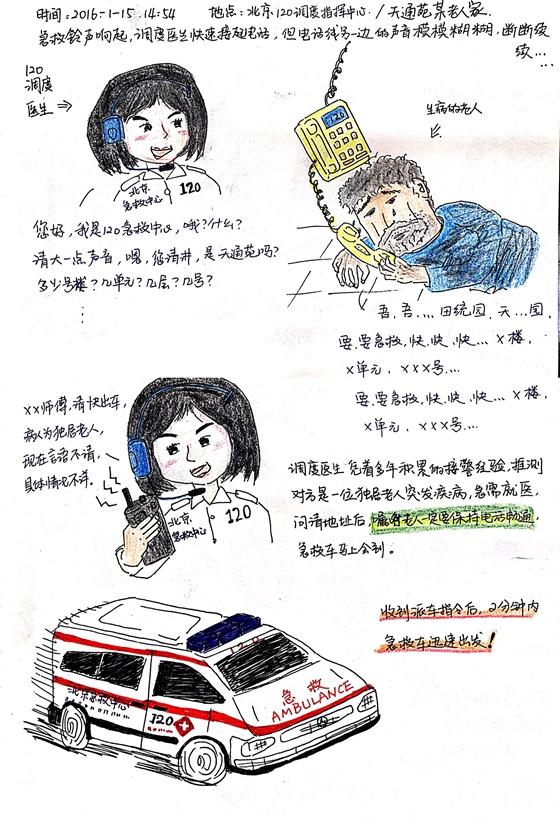 时间:2016-1-15 14:54 地点:北京120调度指挥中心./天通苑某老人家.
急救铃声响起,调度医生快速接起电话,但电话线另一边的声音模模糊糊,断断续
续...
120
调度
医生⇒
北京
急救中心
120
120
生病的老人
您好,我是120急救中心,哦?什么?
请大一点声音,嗯,您请讲,是天通苑吗?
多少号楼?几单元?几层?几号?
吾,吾....田统园,天...园,
要.要急救,快,快,快...x楼,
x单元,xxx号...
要.要急救,快,快,快...x楼,
x单元,xxx号...
xx师傅,请快出车,
病人为独居老人,
现在言语不清,
具体情况不详.
北京
急救中心
120
调度医生凭着多年积累的接警经验,推测
对方是一位独居老人突发疾病,急需就医,
问清地址后,嘱咐老人一定要保持电话畅通,
急救车马上会到。
收到派车指令后,2分钟内
急救车迅速出发!
120
北京急救中心
120
急救
AMBULANCE